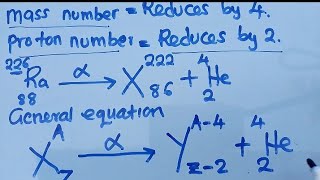 Mass number = Reduces by 4.
Proton number = Reduces by 2.
²²⁶₈₈Ra —α→ X²²²₈₆ + ⁴₂He
General equation
X^A_Z —α→ Y^{A-4}_{Z-2} + ⁴₂He